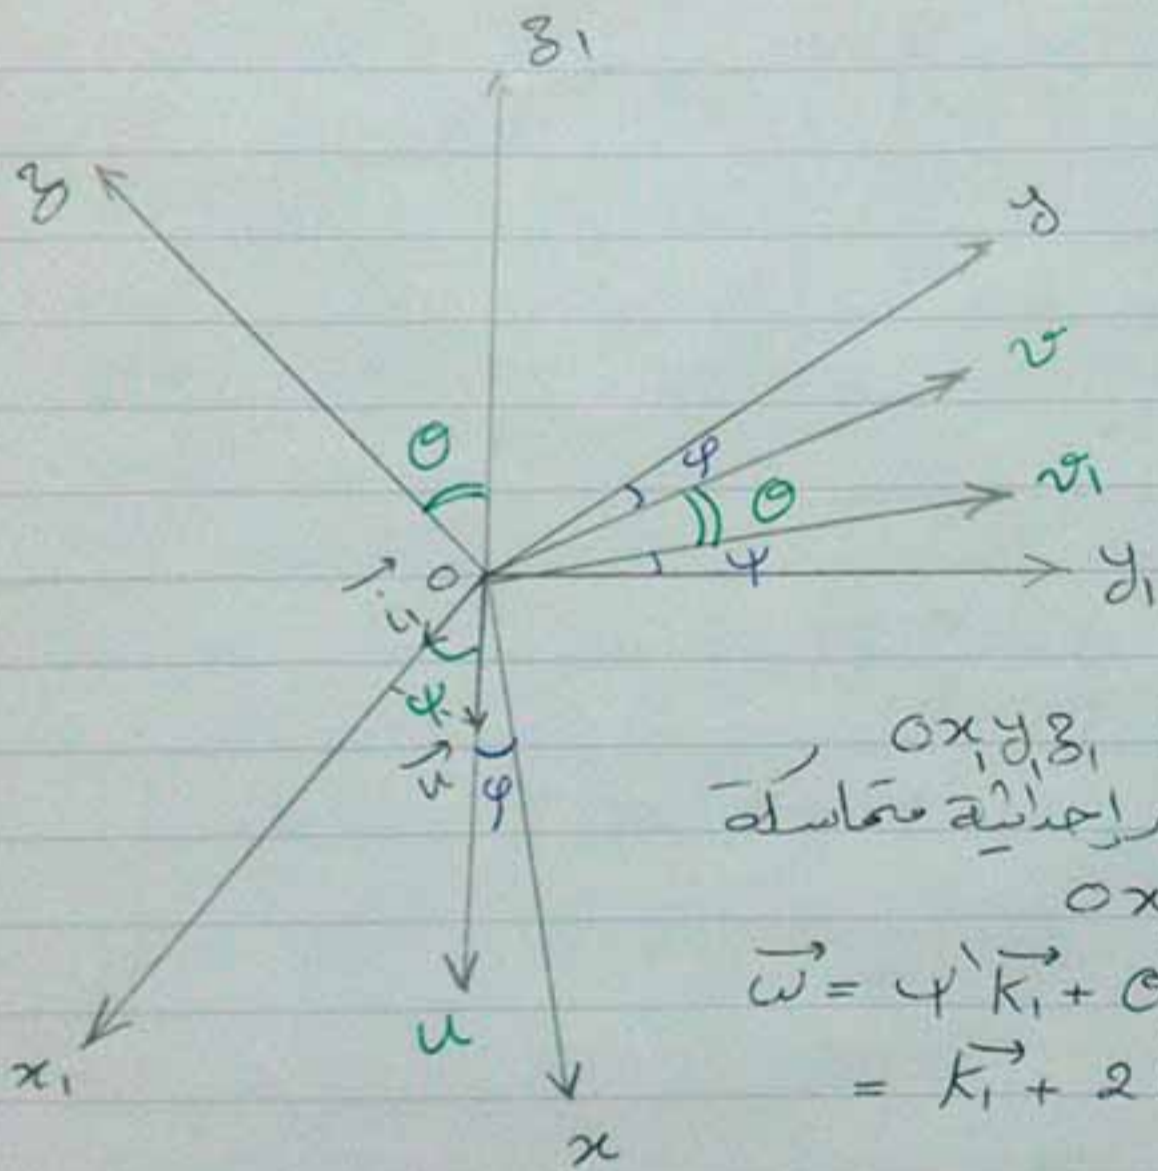 z₁
z
y
v
θ
φ
θ
v₁
ψ
y₁
o
i₁⃗
ψ
u⃗
φ
ox₁y₁z₁
إحداثية متماسكة
ox
ω⃗ = ψ` k₁⃗ +
u
= k₁⃗ + 2
x₁
x